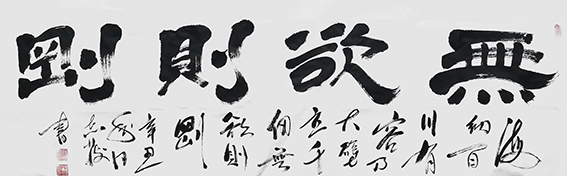 無欲則剛
海
納百
川有
容乃
大壁
立千
仞無
欲則
剛
辛丑
書